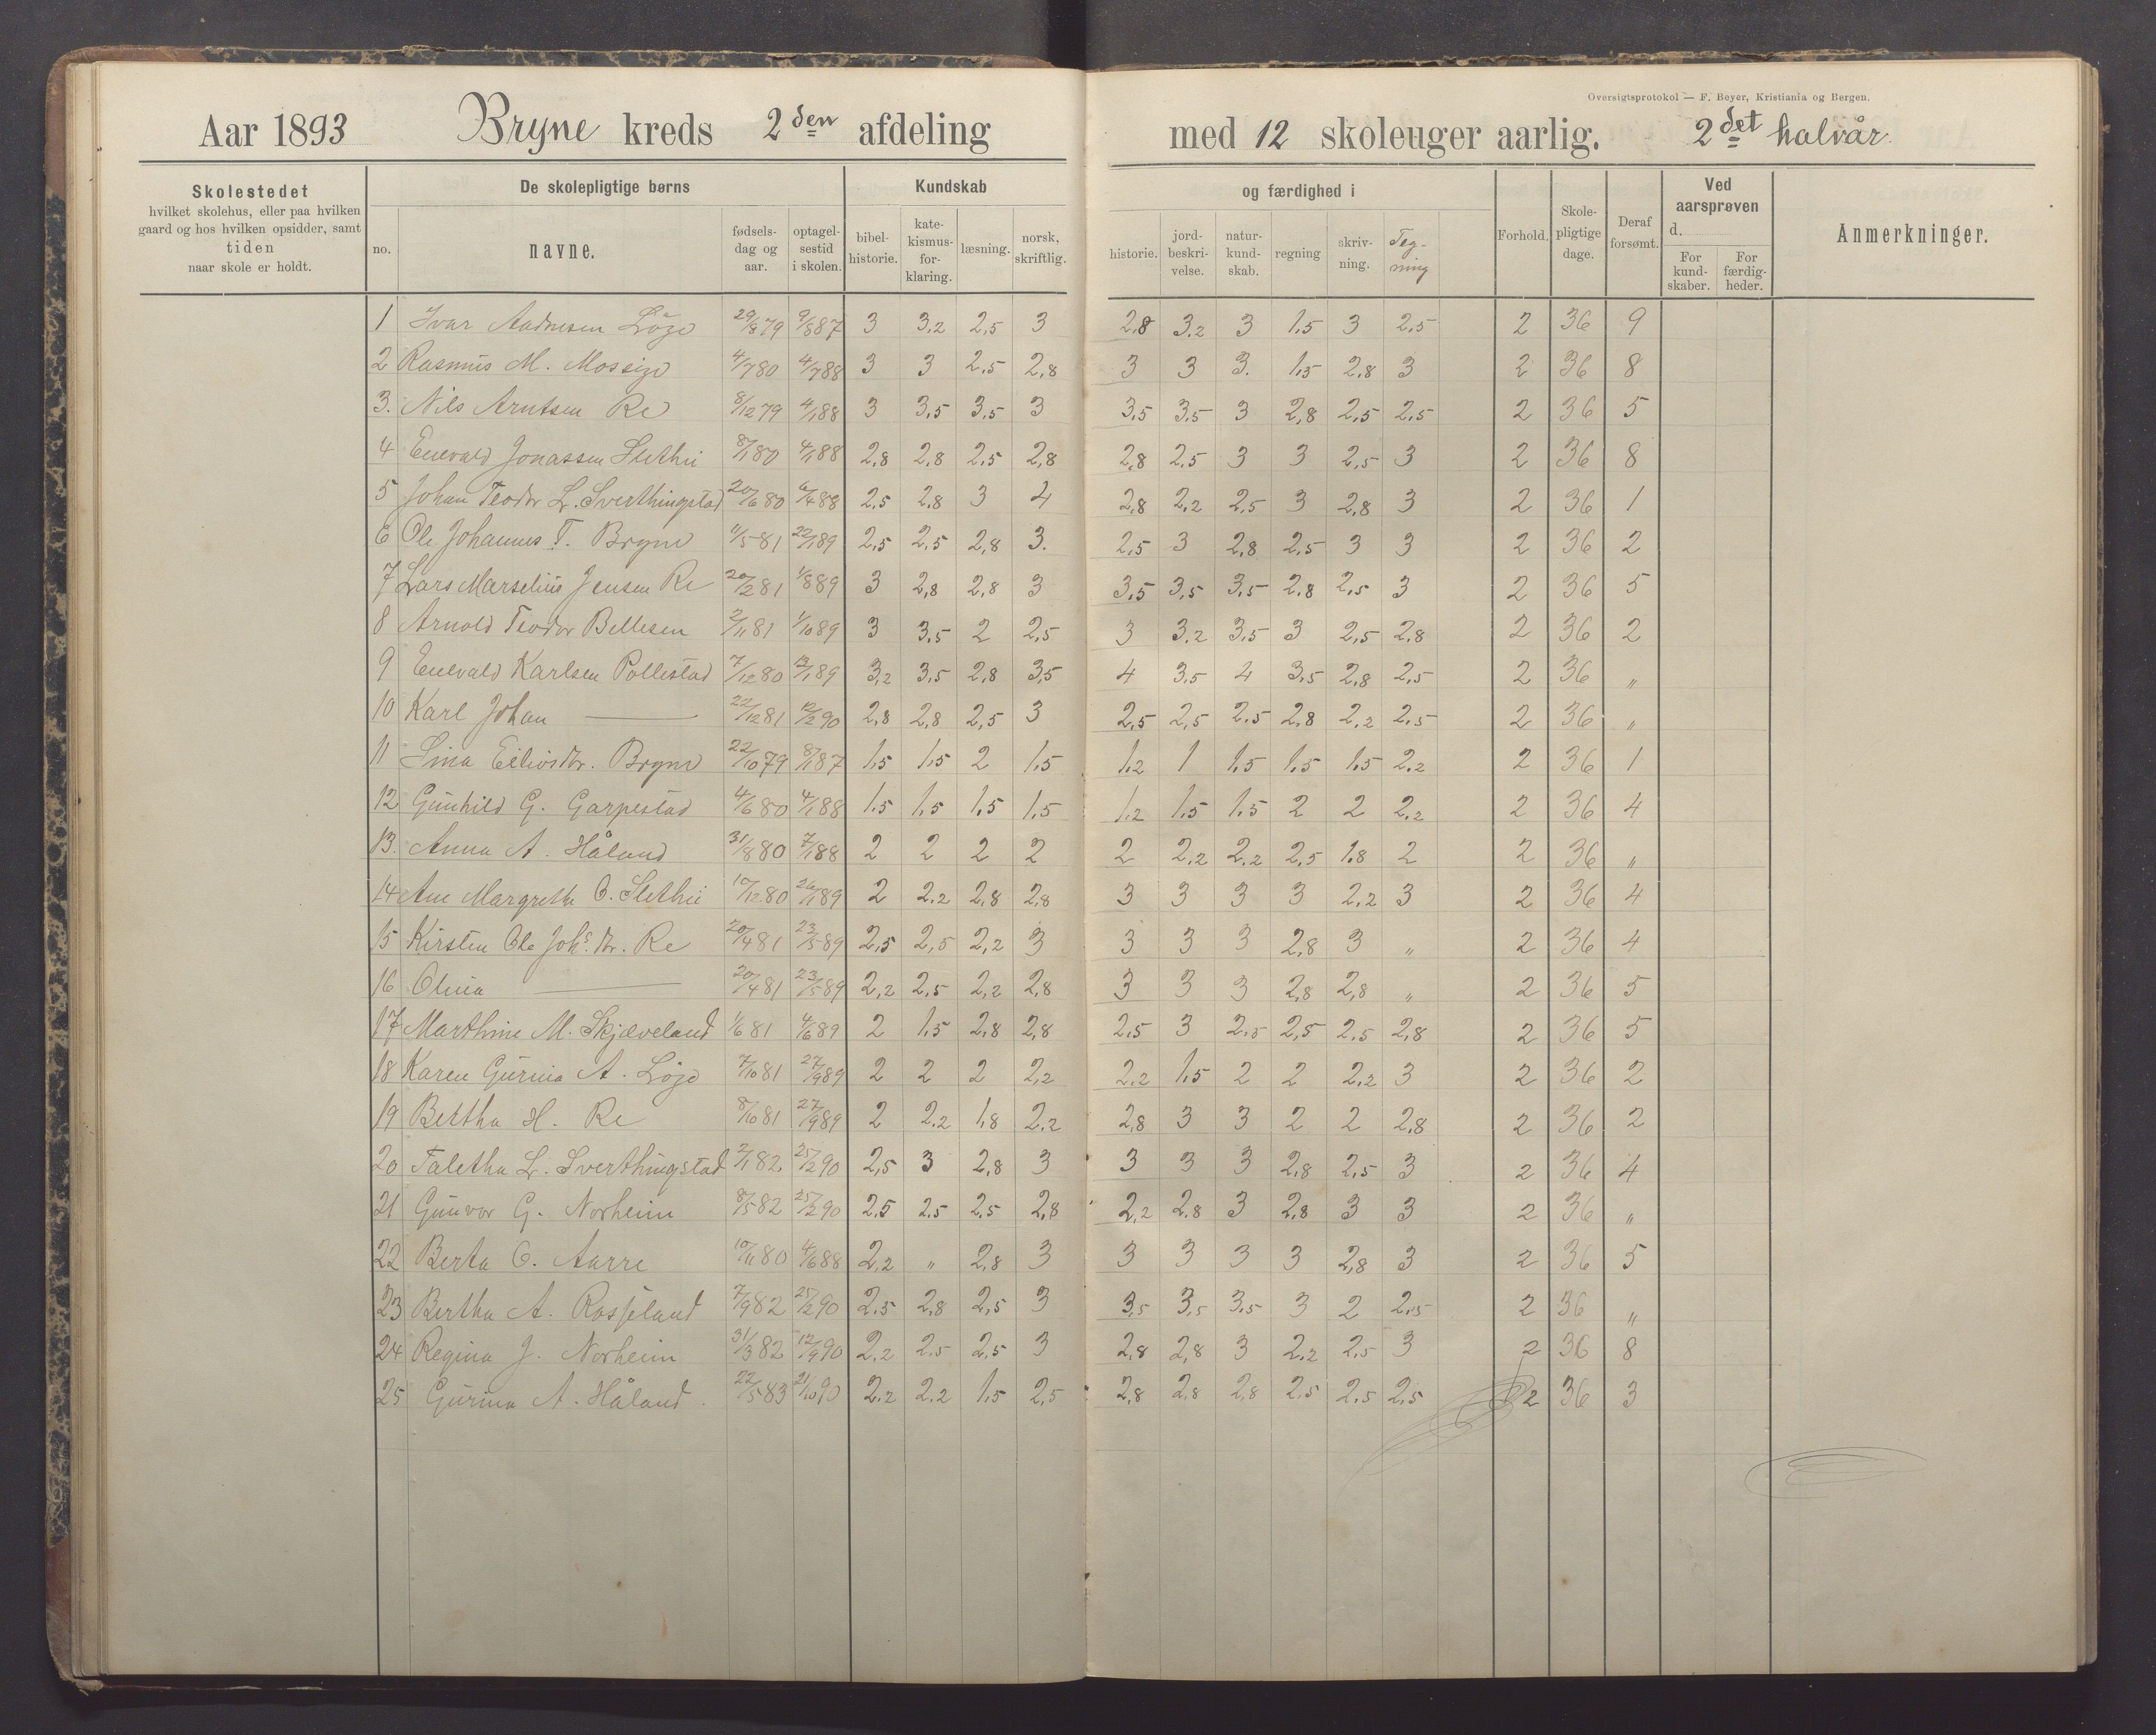 Oversigtsprotokol — F. Beyer, Kristiania og Bergen.
Aar 1893 Bryne kreds 2den afdeling med 12 skoleuger aarlig. 2det halvår.
Skolestedet hvilket skolehus, eller paa hvilken gaard og hos hvilken opsidder, samt tiden naar skole er holdt.
De skolepligtige børns
no. navne. fødsels-dag og aar. optagel-sestid i skolen.
Kundskab og færdighed i
bibel-historie. kate-kismus-for-klaring. læsning. norsk, skriftlig. historie. jord-beskri-velse. natur-kund-skab. regning skriv-ning. Teg-ning
Forhold. Skole-pligtige dage. Deraf forsømt. Ved aarsprøven d. For kund-skaber. For færdig-heder. Anmerkninger.
1 Ivar Aadnesen Löge 29/8 79 9/8 87 3 3,2 2,5 3 2,8 3,2 3 1,5 3 2,5 2 36 9
2 Rasmus M. Mossige 4/7 80 4/7 88 3 3 2,5 2,8 3 3 3. 1,5 2,8 3 2 36 8
3. Nils Arntsen Re 8/12 79 4/1 88 3 3,5 3,5 3 3,5 3,5 3 2,8 2,5 2,5 2 36 5
4 Enevald Jonassen Slethei 8/1 80 4/1 88 2,8 2,8 2,5 2,8 2,8 2,5 3 3 2,5 3 2 36 8
5 Johan Teodor L. Sverthingstad 20/6 80 6/4 88 2,5 2,8 3 4 2,8 2,2 2,5 3 2,8 3 2 36 1
6 Ole Johannes T. Bryne 11/5 81 22/1 89 2,5 2,5 2,8 3. 2,5 3 2,8 2,5 3 3 2 36 2
7 Lars Marselius Jensen Re 20/2 81 1/8 89 3 2,8 2,8 3 3,5 3,5 3,5 2,8 2,5 3 2 36 5
8 Arnold Teodor Bellesen 2/11 81 1/10 89 3 3,5 2 2,5 3 3,2 3,5 3 2,5 2,8 2 36 2
9 Enevald Karlsen Pollestad 7/12 80 12/1 89 3,2 3,5 2,8 3,5 4 3,5 4 3,5 2,8 2,5 2 36 "
10 Karl Johan — 22/12 81 12/2 90 2,8 2,8 2,5 3 2,5 2,5 2,5 2,8 2,2 2,5 2 36 "
11 Sina Eilivsdr. Bryne 22/10 79 8/1 87 1,5 1,5 2 1,5 1,2 1 1,5 1,5 1,5 2,2 2 36 1
12 Gunhild G. Garpestad 4/6 80 4/1 88 1,5 1,5 1,5 1,5 1,2 1,5 1,5 2 2 2,2 2 36 4
13. Anna A. Håland 31/8 80 7/1 88 2 2 2 2 2 2,2 2,2 2,5 1,8 2 2 36 "
14 Ane Margrethe O. Slethei 10/12 80 26/1 89 2 2,2 2,8 2,8 3 3 3 3 2,2 3 2 36 4
15 Kirsten Ole Johs. dr. Re 20/4 81 23/5 89 2,5 2,5 2,2 3 3 3 3 2,8 3 " 2 36 4
16 Olina — 20/4 81 23/5 89 2,2 2,5 2,2 2,8 3 3 3 2,8 2,8 " 2 36 5
17 Marthine M. Skjæveland 1/6 81 4/6 89 2 1,5 2,8 2,8 2,5 3 2,5 2,5 2,5 2,8 2 36 5
18 Karen Gurina A. Löge 7/10 81 27/9 89 2 2 2 2,2 2,2 1,5 2 2 2,2 3 2 36 2
19 Bertha H. Re 8/10 81 27/9 89 2 2,2 1,8 2,2 2,8 3 3 2 2 2,8 2 36 2
20 Taletha L. Sverthingstad 2/1 82 25/2 90 2,5 3 2,8 3 3 3 3 2,8 2,5 3 2 36 4
21 Gunvor G. Norheim 8/5 82 25/2 90 2,5 2,5 2,5 2,8 2,2 2,8 3 2,8 3 3 2 36 "
22 Berta O. Aarre 10/11 80 4/6 88 2,2 " 2,8 3 3 3 3 3 2,8 3 2 36 5
23 Bertha A. Rosseland 7/9 82 25/2 90 2,5 2,8 2,5 3 3,5 3,5 3,5 3 2 2,5 2 36 "
24 Regina J. Norheim 31/3 82 12/9 90 2,2 2,5 2,5 3 2,8 2,8 3 2,2 2,5 3 2 36 8
25 Gurina A. Håland. 22/5 83 21/10 90 2,2 2,2 1,5 2,5 2,8 2,8 2,8 2,5 2,5 2,5 2 36 3